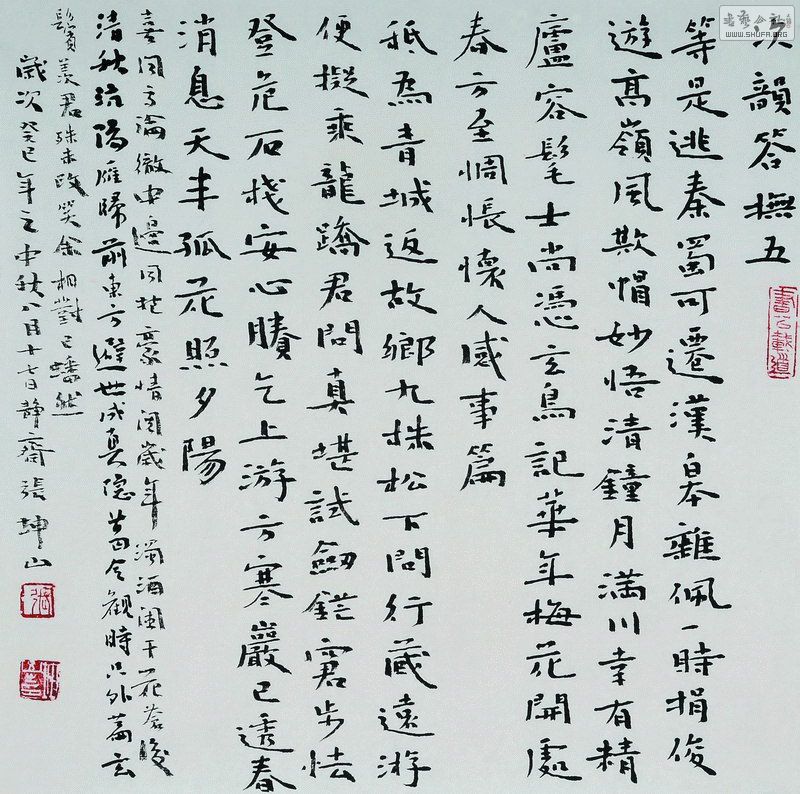 次韻答撫五
等是逃秦蜀可遷漢皋雜佩一時捐俊
遊高嶺風欺帽妙悟清鐘月滿川幸有精
廬容髦士尚憑玄鳥記華年梅花開處
春方至惆悵懷人感事篇
祇為青城返故鄉九株松下問行藏遠游
便擬乘龍蹻君問真堪試劍鋩窘步怯
登危石棧安心賸乞上游方寒巖已透春
消息天半孤花照夕陽
喜聞高論徹中邊同抱豪情閱歲年濁酒闌干花落後
清秋關隴雁歸前東方避世成真隱莊叟觀時只外篇玄
鬢羨君殊未改笑余相對已皤然
歲次癸巳年之中秋八月十七日靜齋張坤山
WWW.SHUFA.ORG